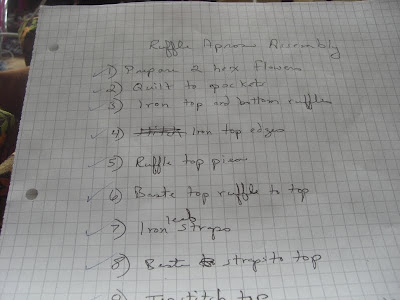 Ruffle Apron Assembly
✓ 1) Prepare 2 hex flowers
✓ 2) Quilt to pockets
✓ 3) Iron top and bottom ruffles
✓ 4) Iron top edges
✓ 5) Ruffle top piece
✓ 6) Baste top ruffle to top
✓ 7) Iron straps
✓ 8) Baste straps to top
9) Topstitch top